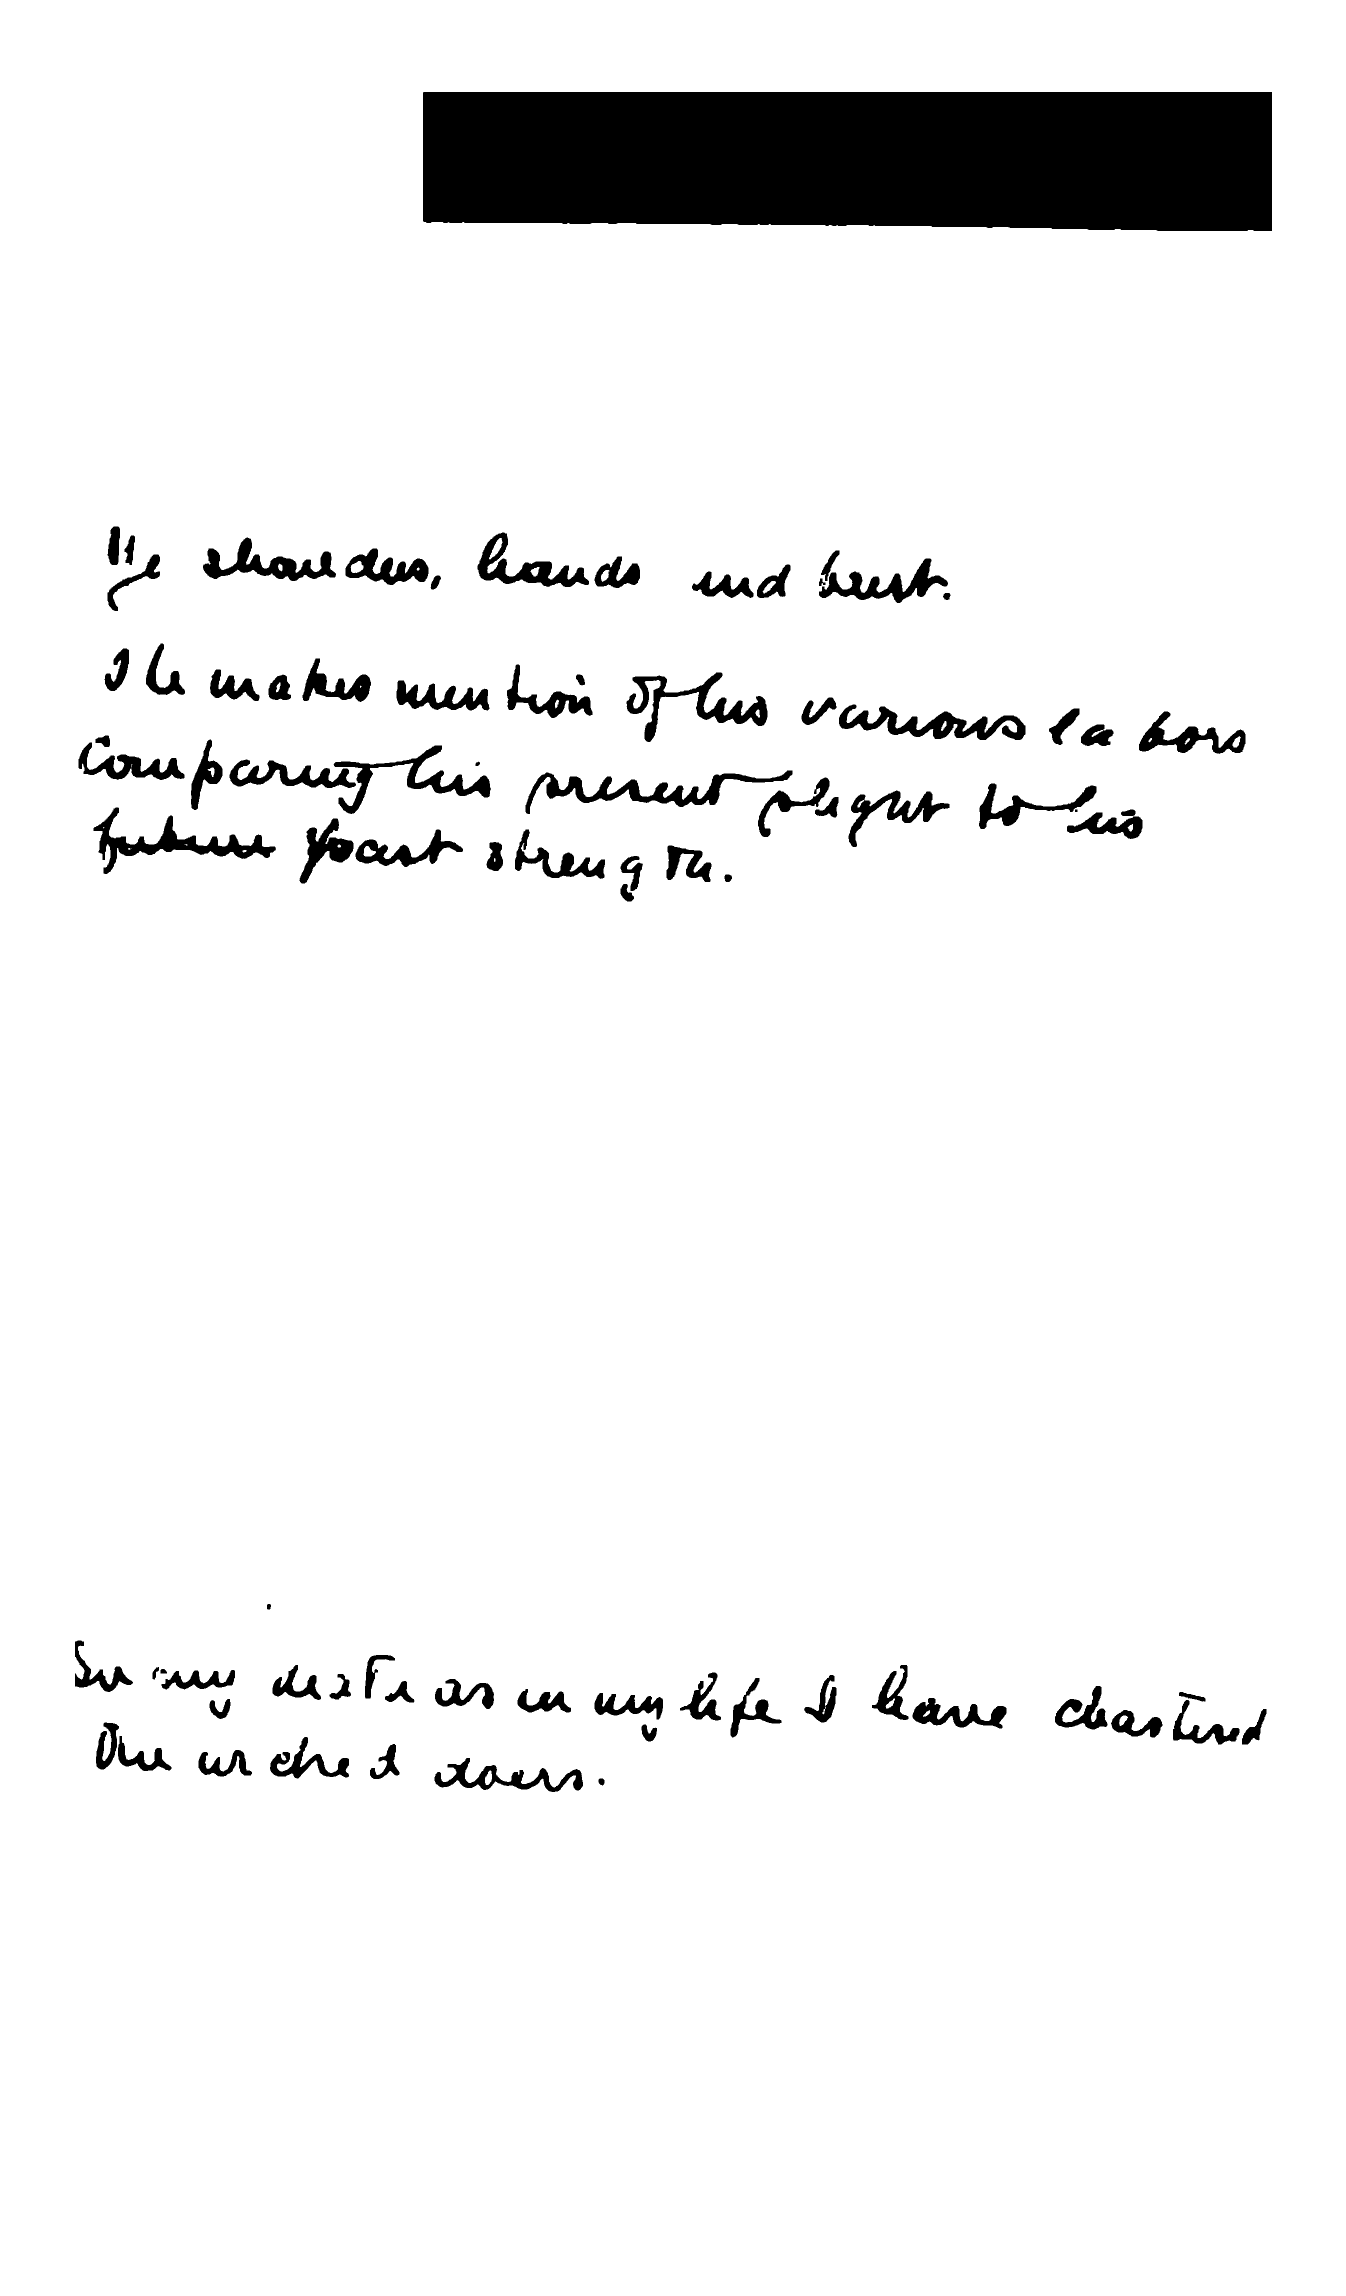 He shoulders, hands and bust.
He makes mention of his various labors
Comparing his present plight to his
future past strength.
In my death as in my life I have chastized
the wicked doers.